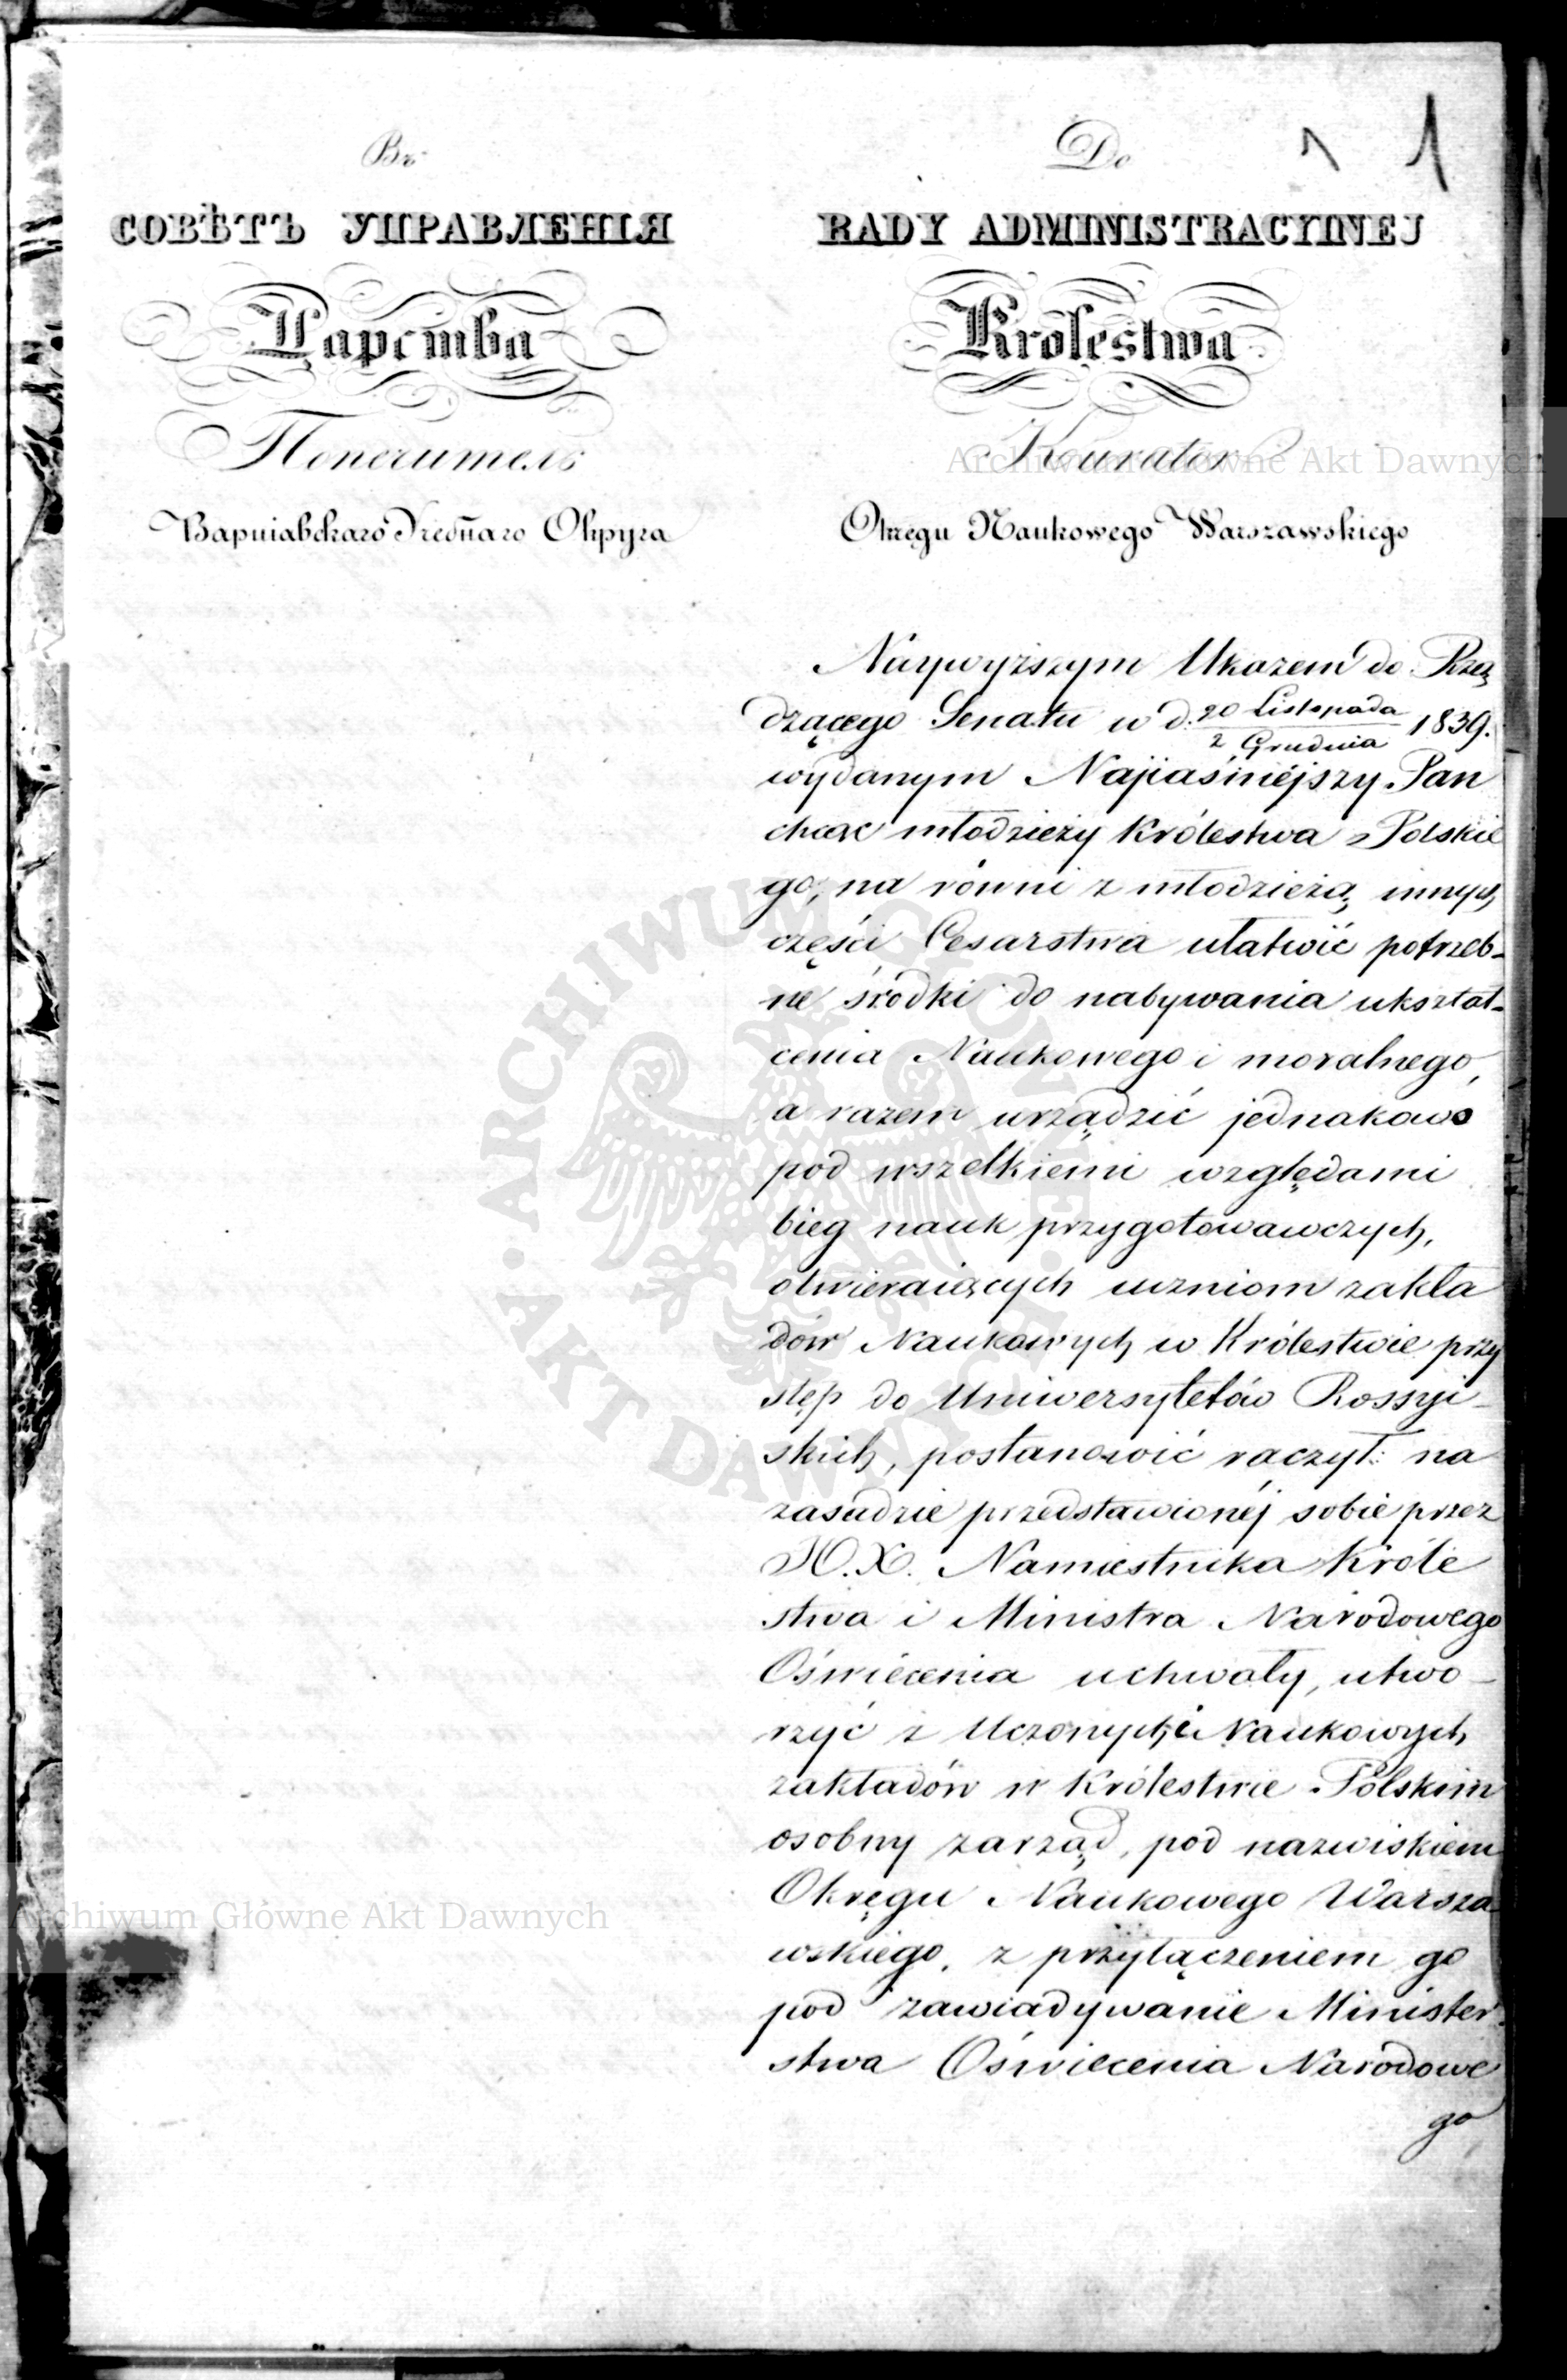 Въ
СОВѢТЪ УПРАВЛЕНІЯ
Царства
Попечитель
Варшавскаго Учебнаго Округа
Do
1 1
RADY ADMINISTRACYINEJ
Królestwa
Kurator
Okręgu Naukowego Warszawskiego
Naywyższym Ukazem do Rzą
dzącego Senatu w d. 20 Listopada / 2 Grudnia 1839.
wydanym Najjaśniéjszy Pan
chcąc młodzieży Królestwa Polskie
go, na równi z młodzieżą innych
części Cesarstwa ułatwić potrzeb-
ne środki do nabywania ukształ-
cenia Naukowego i moralnego,
a razem urządzić jednakowo
pod wszelkiemi względami
bieg nauk przygotowawczych,
otwieraiących uczniom zakła
dów Naukowych w Królestwie przy
stęp do Uniwersytetów Rossyi-
skich, postanowić raczył: na
zasadzie przedstawionéj sobie przez
JO. X. Namiestnika Króle
stwa i Ministra Narodowego
Oświecenia uchwały, utwo-
rzyć z Uczonych i Naukowych
zakładów w Królestwie Polskim
osobny zarząd, pod nazwiskiem
Okręgu Naukowego Warsza
wskiego, z przyłączeniem go
pod zawiadywanie Minister
stwa Oświecenia Narodowe
go
Archiwum Główne Akt Dawnych
ARCHIWUM GŁÓWNE
AKT DAWNYCH
Archiwum Główne Akt Dawnych